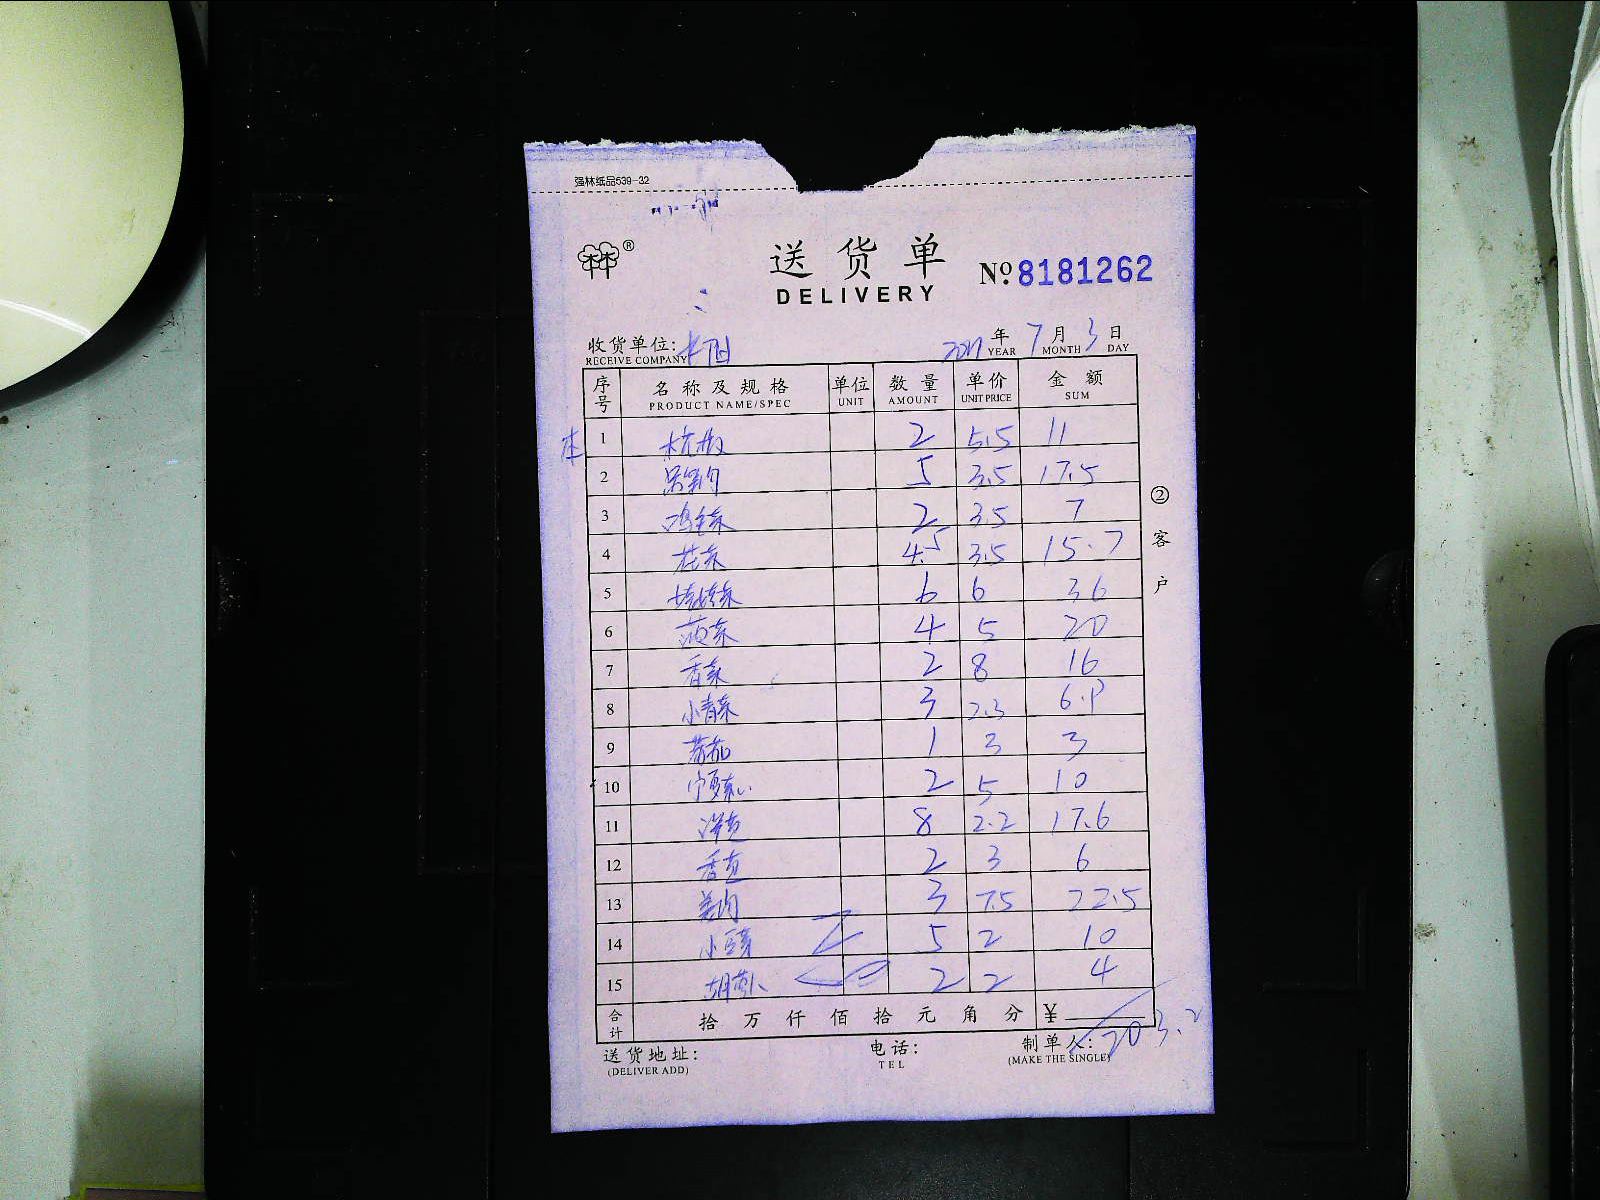 强林纸品539-32
林®
送货单
DELIVERY
No.8181262
收货单位:
RECEIVE COMPANY
年 7 月 3 日
YEAR MONTH DAY
序号 名称及规格 单位 数量 单价 金额
PRODUCT NAME/SPEC UNIT AMOUNT UNIT PRICE SUM
1 杭椒 2 5.5 11
2 5 3.5 17.5
3 2 3.5 7
4 花菜 4.5 3.5 15.7
5 6 6 36
6 菠菜 4 5 20
7 香菜 2 8 16
8 小青菜 3 2.3 6.9
9 蕃茄 1 3 3
10 宁夏菜心 2 5 10
11 洋芋 8 2.2 17.6
12 2 3 6
13 姜肉 3 7.5 22.5
14 小豆芽 5 2 10
15 胡萝卜 2 2 4
合计 拾万仟佰拾元角分 ¥ 203.2
送货地址:
(DELIVER ADD)
电话:
TEL
制单人:
(MAKE THE SINGLE)
②客户